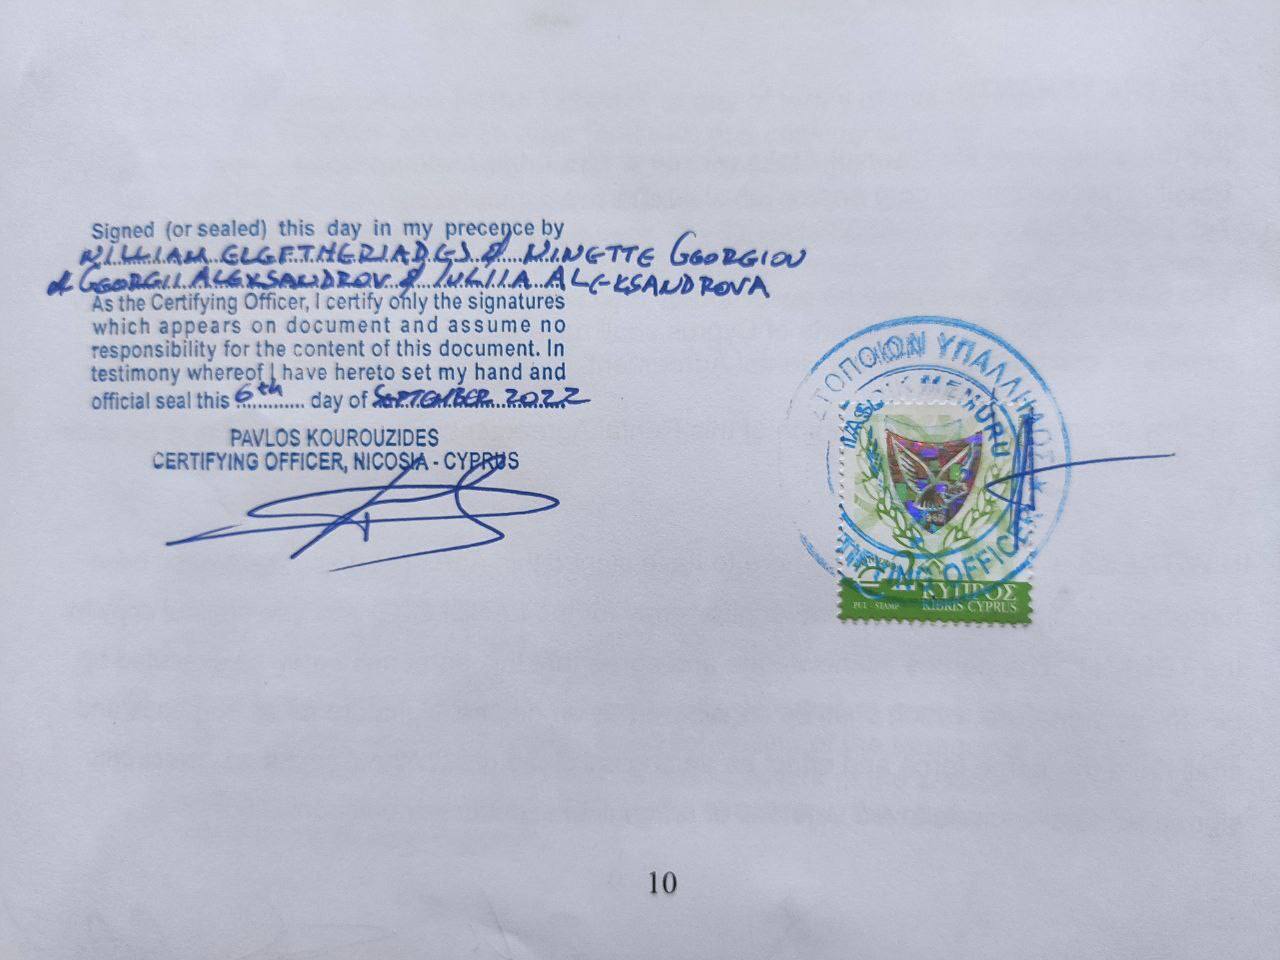 Signed (or sealed) this day in my precence by
WILLIAM ELEFTHERIADES & NINETTE GEORGIOU
& GEORGII ALEKSANDROV & IULIIA ALEKSANDROVA
As the Certifying Officer, I certify only the signatures
which appears on document and assume no
responsibility for the content of this document. In
testimony whereof I have hereto set my hand and
official seal this 6th day of SEPTEMBER 2022
PAVLOS KOUROUZIDES
CERTIFYING OFFICER, NICOSIA - CYPRUS
ΥΠΑΛΛΗΛΟΣ
MEMURU
OFFICER
1960
€2
ΚΥΠΡΟΣ
PUL - STAMP
KIBRIS CYPRUS
10